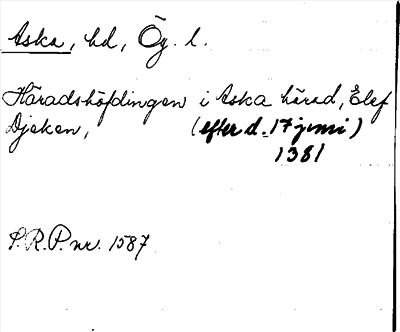 Aska, hd, Ög. l.
Häradshöfdingen i Aska härad, Elef
Djeken, (efter d. 17 juni)
1381
S.R.P. nr. 1587